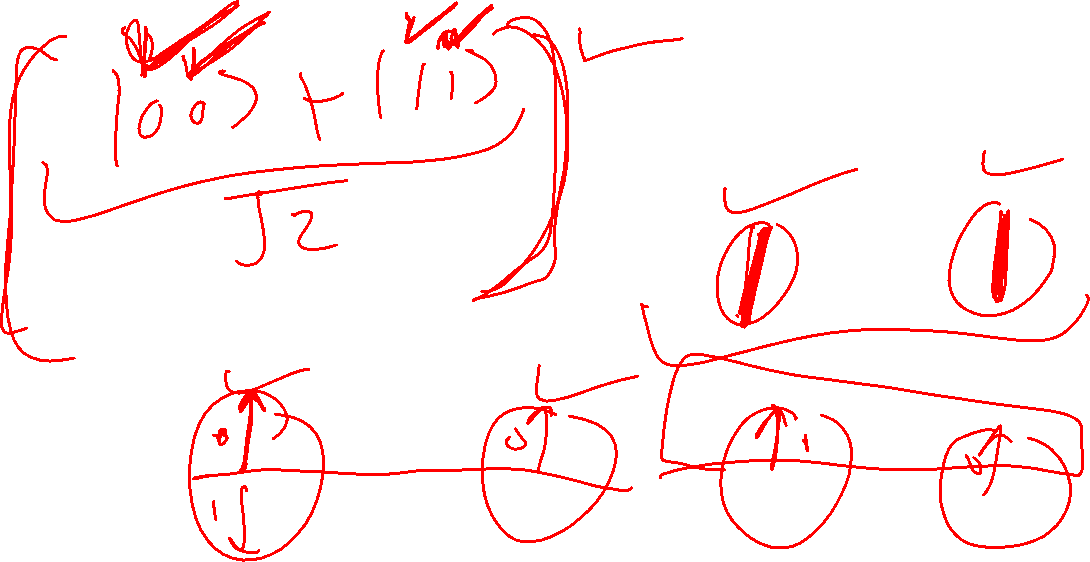 |00⟩ + |11⟩
√2
0 0 1 0
1